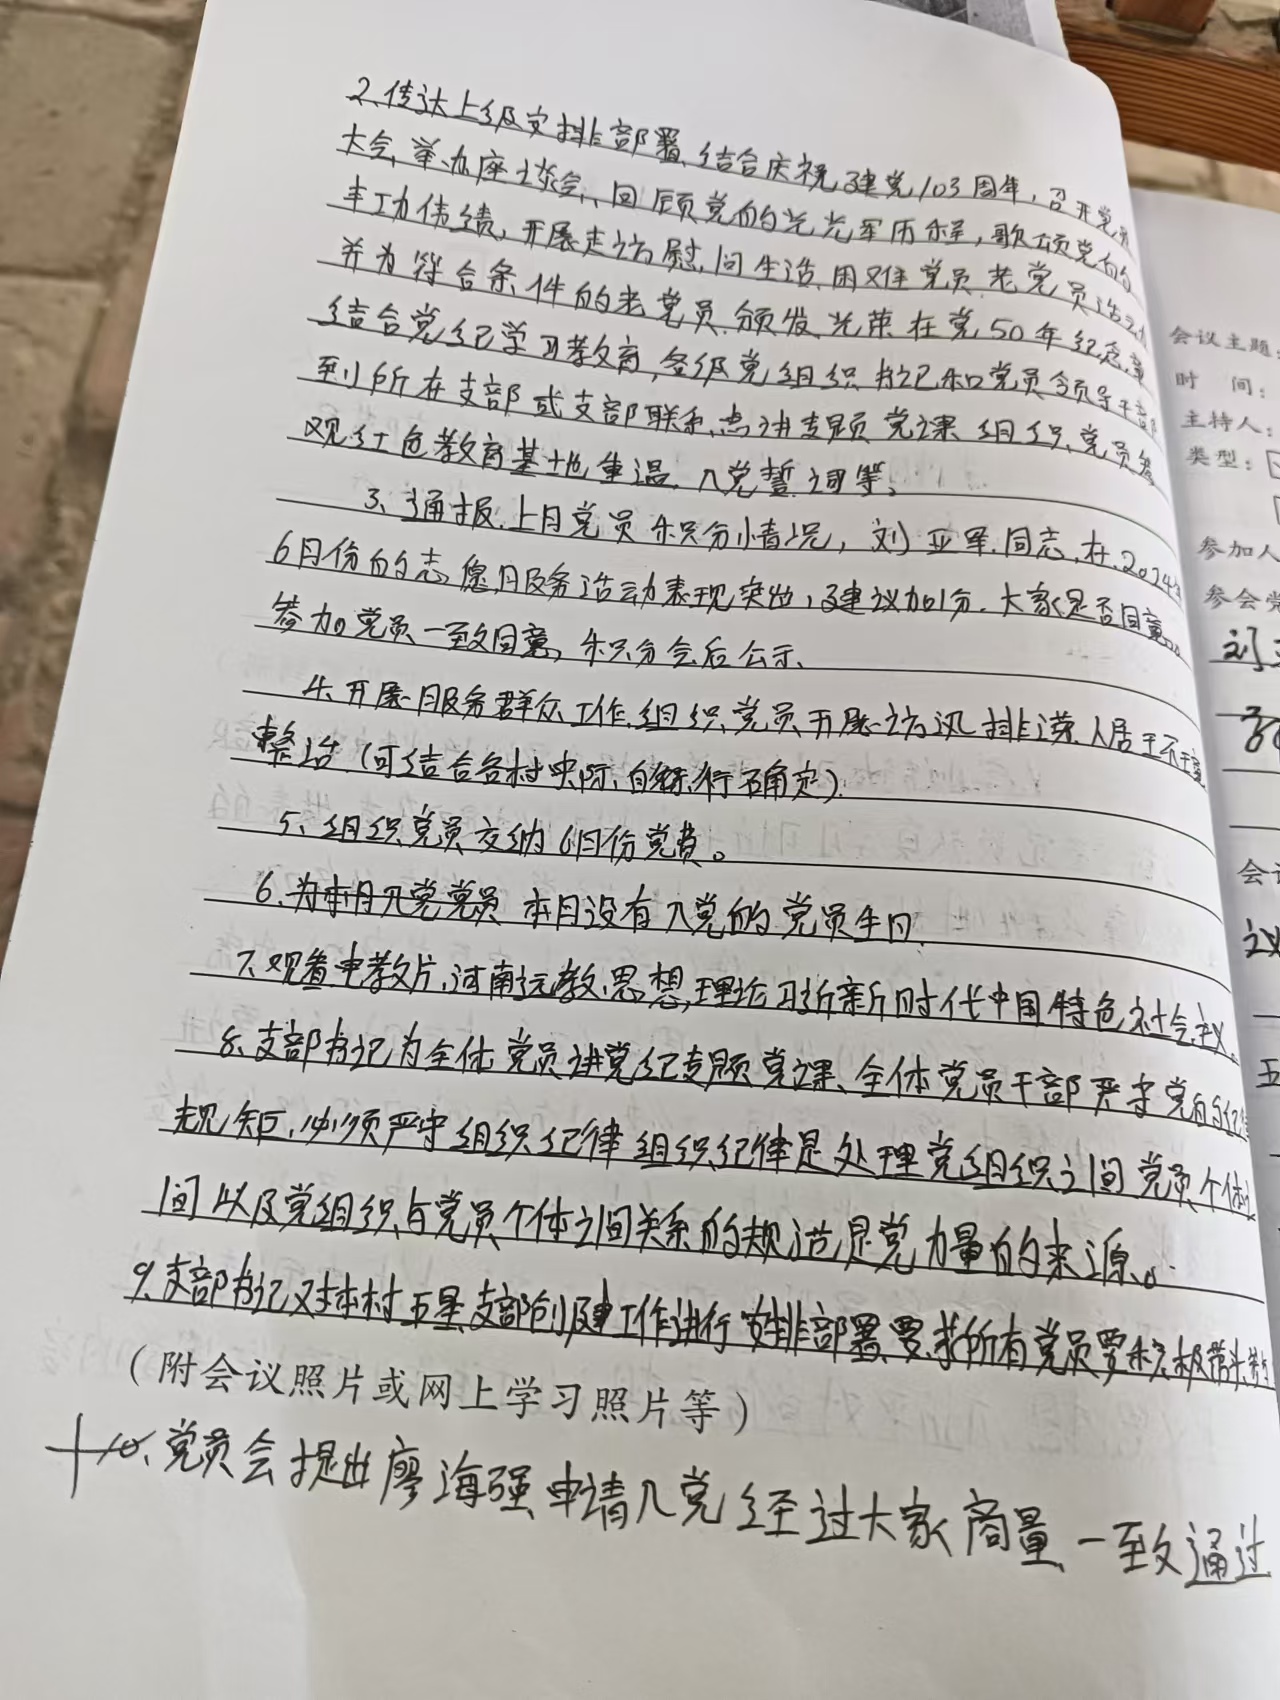 2、传达上级安排部署,结合庆祝建党103周年,召开党员
大会,举办座谈会、回顾党的光光军历程,歌颂党的
丰功伟绩,开展走访慰问生活困难党员 老党员活动
并为符合条件的老党员颁发光荣在党50年纪念章
结合党纪学习教育,各级党组织书记和党员领导干部
到所在支部或支部联系点讲专题党课 组织党员参
观红色教育基地重温入党誓词等。
3、通报上月党员积分情况,刘亚军同志在2024年
6月份的志愿服务活动表现突出,建议加1分.大家是否同意。
参加党员一致同意,积分会后公示、
4.开展服务群众工作.组织党员开展访汛排涝.人居干不干
整治(可结合各村实际,自行确定).
5、组织党员交纳6月份党费。
6.为本月入党党员 本月没有入党的党员生日
7.观看电教片,河南远教.思想理论 习近新时代中国特色社会主义
8.支部书记为全体党员讲党纪专题党课、全体党员干部严守党的纪律
规矩,必须严守组织纪律 组织纪律是处理党组织之间 党员个体之
间以及党组织与党员个体之间关系的规范,是党力量的来源。
9.支部书记对本村五星支部创建工作进行安排部署,要求所有党员要积极带头
(附会议照片或网上学习照片等)
十 10、党员会提出廖海强申请入党 经过大家商量 一致通过
会议主题:
时 间:
主持人:
类型:
参加人
参会党
刘
会议
议
五